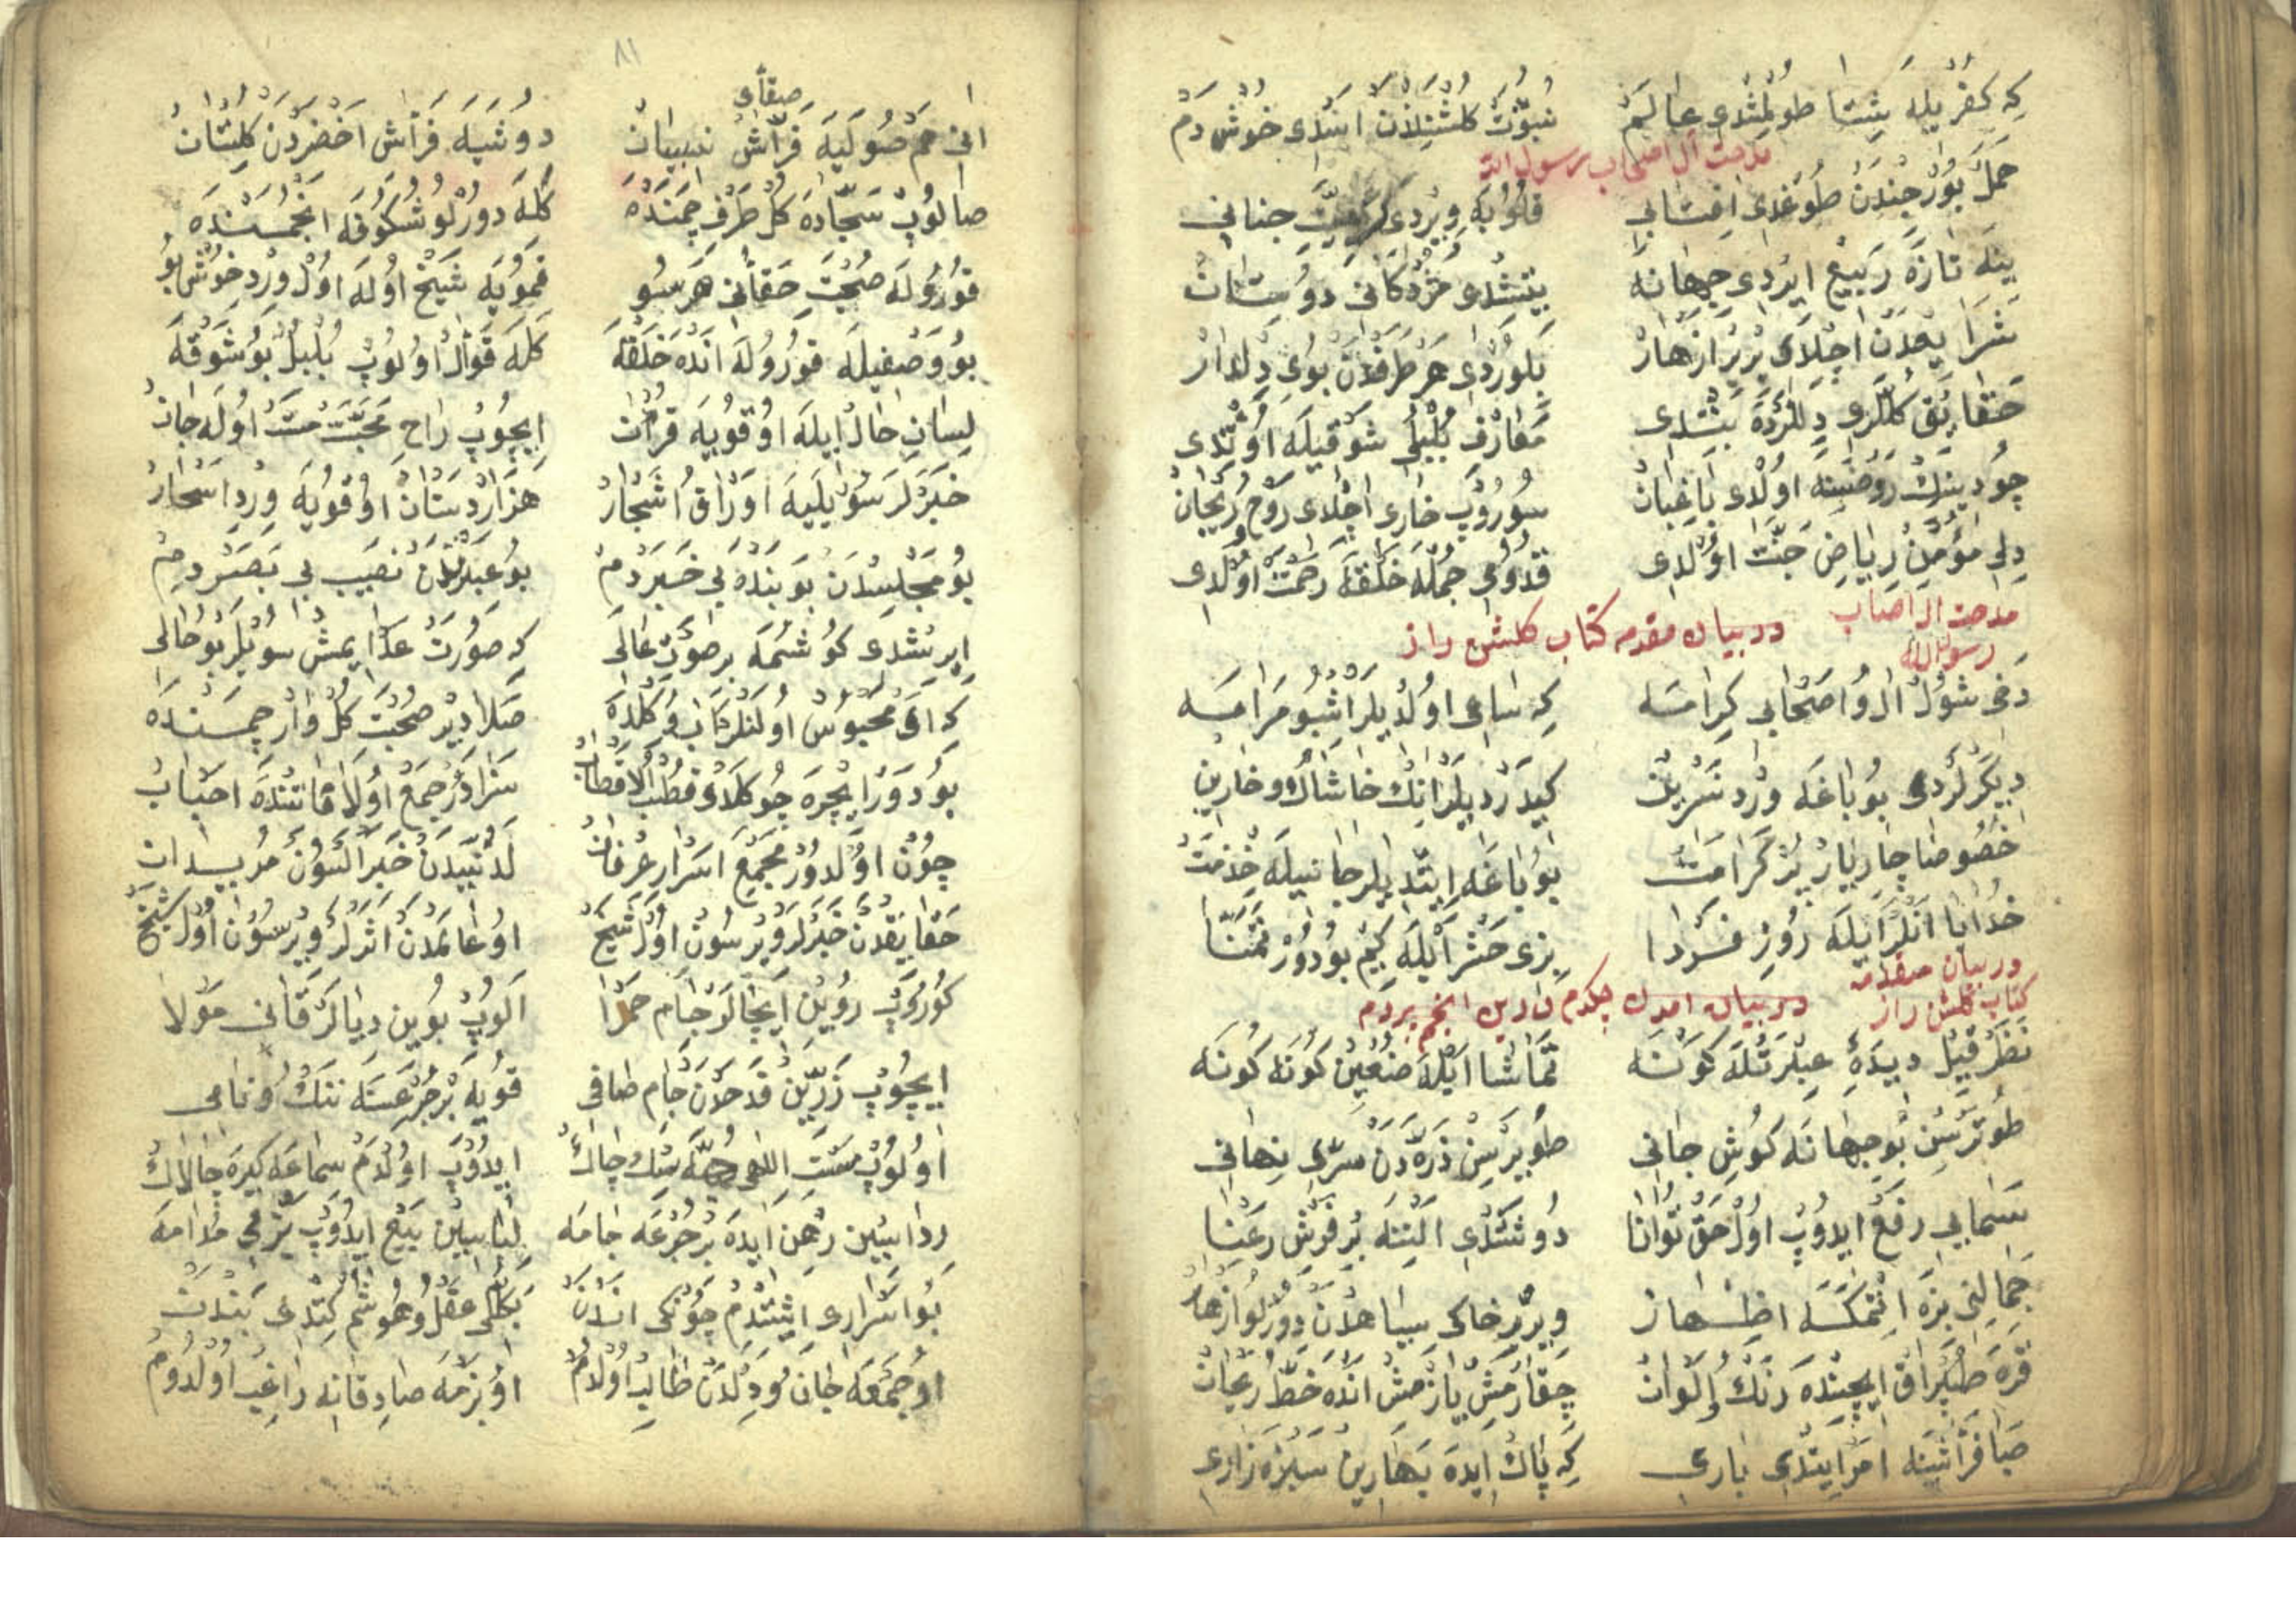 که کفریله شتا طولمشدی عالم نبوت کلشنندن اسدی خوش دم
مدحت آل اصحاب رسول الله
حمل بورجندن طوغدی افتابی قلوبه ویردی جنانی
ینه تازه ربیع ایردی جهانه یتشدی مژدکانی دوستانه
ثرا یوزدن اچلدی بربر ازهار بلوردی هر طرفدن بوی دلدار
حقایق کللری دللرده بتدی معارف بلبلی شوقیله اوتدی
چو دینک روضسنه اولدی باغبان سوروب خاری اچلدی روح ریحان
دل مؤمن ریاض جنت اولدی قدومی جمله خلقه رحمت اولدی
مدحت ال اصحاب رسول الله
در بیان مقدمه کتاب کلشن راز
دخی شول ال و اصحابی کرامه که ساعی اولدیلر اشبو مرامه
دیکرلردی بو باغه ورد نسرین کیدردیلر انک خاشاک و خارین
خصوصا چار یار پر کرامت بو باغه ایتدیلر جانیله خدمت
خدایا انلر ایله روز فردا بزی حشر ایله کیم بودور تمنا
در بیان مقدمه کتاب کلشن راز
نظر قیل دیده عبرتله کونه تماشا ایله صنعین کونه کونه
طوترسن بو جهانه کوش جانی طویرسن ذره دن سر نهانی
سمایی رفع ایدوب اول حق توانا دوشتدی التنه بر فرش رعنا
جمالنی بزه اتمکه اظهار ویرر خاک سیاهدن دورلو ازهار
قره طپراق ایچنده رنک الوان چقارمش یازمش انده خط ریحان
صبا فراشنه امر ایتدی باری که پاک ایده بهارین سبزه زاری
صقای
انی هم صولیه فراش نیسان دوشیه فراش اخضردن کلستان
صالوب سجاده کل طرف چمنده کله دورلو شکوفه انجمنده
قوروله صحبت حقانی هر سو قمویه شیخ اوله اول ورد خوش بو
بو وصفیله قوروله انده خلقه کله قوال اولوب بلبل بو شوقه
لسان حال ایله اوقویه قرآن ایچوب راح محبت مست اوله جان
خبرلر سویلیه اوراق اشجار هزار دستان اوقویه ورد اسحار
بو مجلسدن بو بنده بی خبردم بو عبرتدن نصیب بی بصردم
ایرشدی کوشمه بر صوت عالی که صورت عدا ایمش سویلر بو حالی
که ای محبوس اولنلر اب و کلده صلا دیر صحبت کل وار چمنده
بو دور ایچره چو کلدی قطب الاقطاب سزادر جمع اولا قاتنده احباب
چون اولدور مجمع اسرار عرفان لدنیدن خبر السون مریدان
حقایقدن خبرلر ویرسون اول شیخ او عالمدن اثرلر ویرسون اول شیخ
کوروب رویین ایچالر جام حمرا الوب بوین دیالر قانی مولا
ایچوب زرین قدحدن جام صافی قویه بر جرعسنه ننک و نامی
اولوب مست الهی ایدوب اولدم سماعه کیره چالاک
ردا سین رهن ایده بر جرعه جامه لباسین بیع ایدوب می مدامه
بو اسراری ایشتدم چونکی اندن بکلی عقل و هوشم کتدی بندن
او جمعه جان و دلدن طالب اولدم او بزمه صادقانه راغب اولدوم